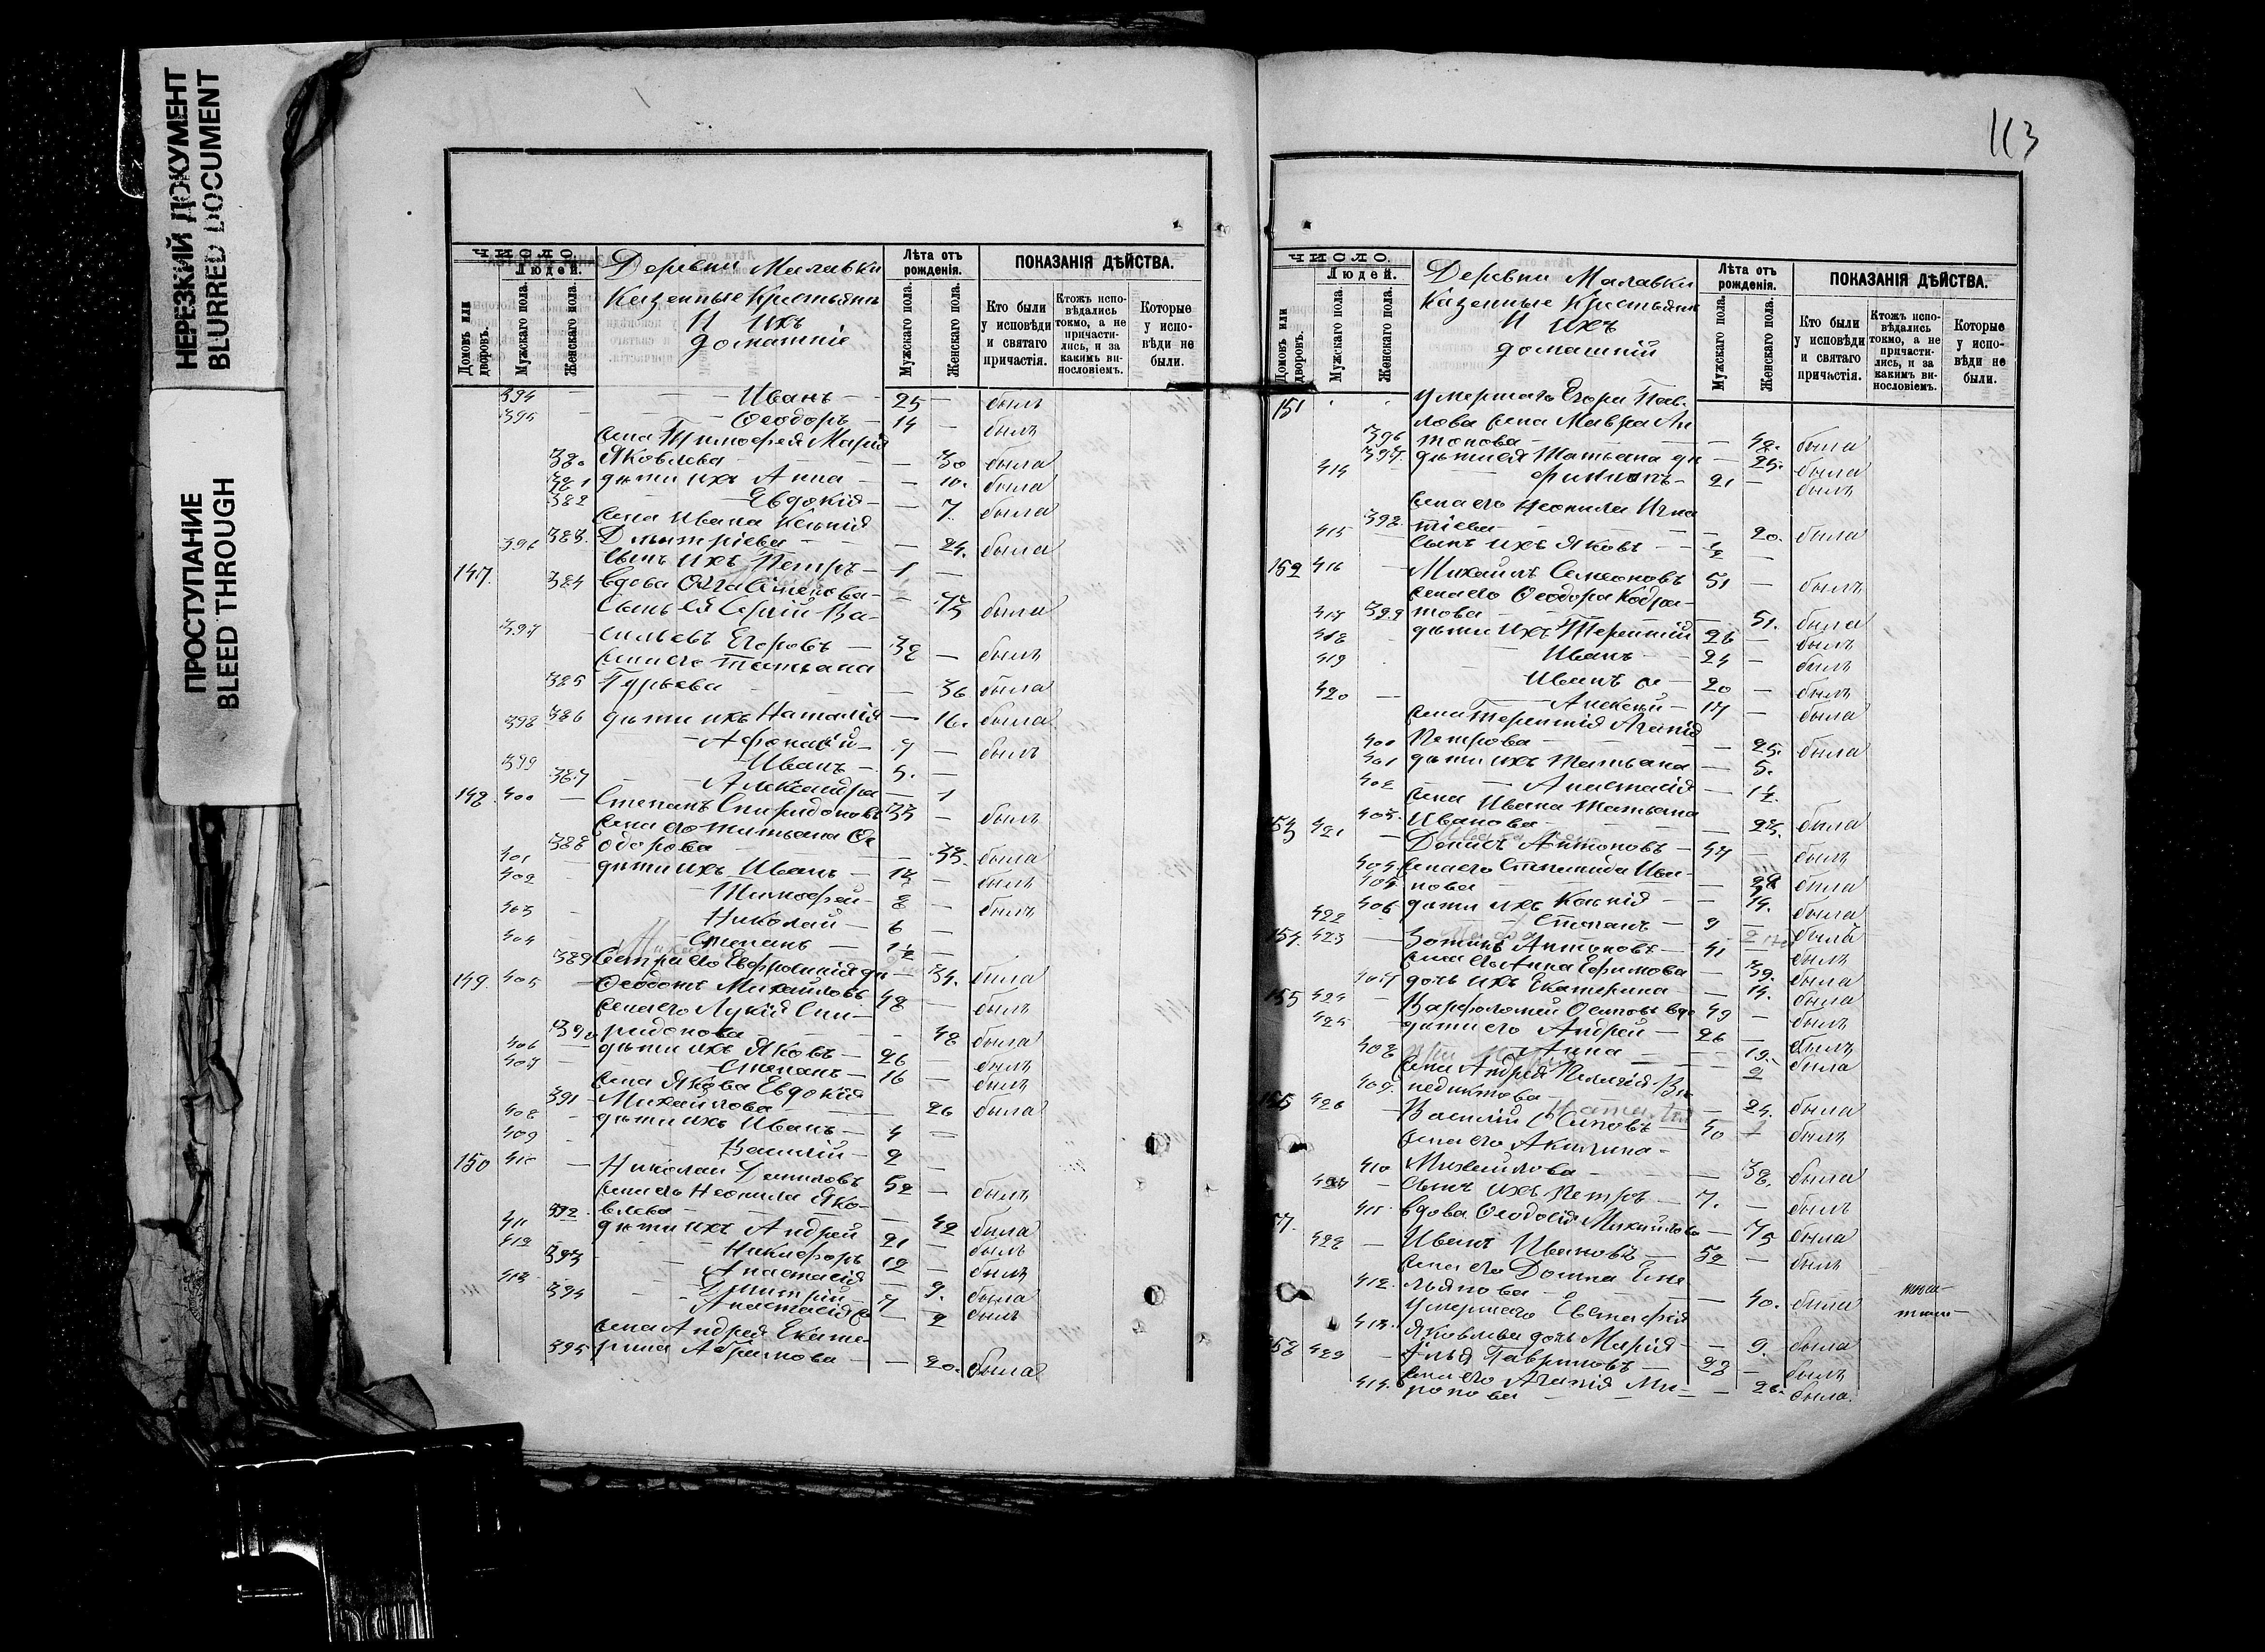 НЕРЕЗКИЙ ДОКУМЕНТ
BLURRED DOCUMENT
ПРОСТУПАНИЕ
BLEED THROUGH
ЧИСЛО.
Людей.
Домовъ или дворовъ.
Мужскаго пола.
Женскаго пола.
Деревни Малавки
Казенные Крестьяни
И ихъ
домашніе
Лѣта отъ рожденія.
Мужскаго пола.
Женскаго пола.
ПОКАЗАНІЯ ДѢЙСТВА.
Кто были у исповѣди и святаго причастія.
Ктожъ исповѣдались токмо, а не причастились, и за какимъ винословіемъ.
Которые у исповѣди не были.
394 — Иванъ — 25 — былъ
395 — Ѳеодоръ — 14 — былъ
жена Тимофея Марія
380 Яковлева — 30 была
381 дѣти ихъ Анна — 10. была
382 — Евдокія — 7. была
жена Ивана Ксенія
383. Дмитріева — 24. была
396 сынъ ихъ Петръ — 1 —
147. 384 вдова
— 75 была
сынъ ея Ва-
397 сильевъ Егоровъ — 38 — былъ
жена его Татьяна
385 Гурьева — 36 была
386 дѣти ихъ Наталія — 16. была
398 — Афонасій — 9 — былъ
399 — Иванъ — 5. —
387 — Александра — 1
148. 400 — Степанъ Спиридоновъ 33 — былъ
жена его Татьяна Ѳе
388 одорова — 33. была
401 дѣти ихъ Иванъ — 13 — былъ
402 — Тимофей — 8 — былъ
403 — Николай — 6 —
404 — Степанъ — 1½ —
389 Сестра его Евфросинія дв — 34. была
149. 405 — Ѳеодотъ Михайловъ 48 — былъ
жена его Лукія Спи-
390 ридонова — 48 была
406 дѣти ихъ Яковъ — 26 — былъ
407 — Степанъ — 16 — былъ
жена Якова Евдокія
391 Михайлова — 26 была
408 — дѣти ихъ Иванъ — 4 —
409 — Василій — 2 —
150 410 — Николай Даниловъ 52 — былъ
жена его Неонила Яко-
392. влева — 42 была
411 дѣти ихъ Андрей 21 — былъ
412 — Никифоръ 12 — былъ
393 — Анастасія — 9. была
413 — Дмитрій — 7 — былъ
394 — Анастасія — 2
жена Андрея Екате-
395 рина Абрамова — 20. была
113
ЧИСЛО.
Людей.
Домовъ или дворовъ.
Мужскаго пола.
Женскаго пола.
Деревни Малавки
Казенные Крестьяни
И ихъ
домашній
Лѣта отъ рожденія.
Мужскаго пола.
Женскаго пола.
ПОКАЗАНІЯ ДѢЙСТВА.
Кто были у исповѣди и святаго причастія.
Ктожъ исповѣдались токмо, а не причастились, и за какимъ винословіемъ.
Которые у исповѣди не были.
151 умершаго Егора Пав-
лова жена Мавра Ан
396 тонова — 48. была
397. дѣти ея Татьяна дв — 25. была
414 — Филипъ — 21 — былъ
жена его Неонила Игна
398 тіева — 20. была
415 — сынъ ихъ Яковъ — ½ —
152 416 — Михаилъ Симеоновъ 51 — былъ
жена его Ѳеодора Кодра-
399 това — 51. была
417 дѣти ихъ Терентій 26 — былъ
418 — Иванъ — 24 — былъ
419 — Иванъ — 20 — былъ
420 — Алексѣй — 17 — была
жена Терентія Агапія
400 Петрова — 25. была
401 дѣти ихъ Татьяна — 5.
402 — Анастасія — 1½.
жена Ивана Татьяна
403. Иванова — 23. была
153 421 — Денисъ Антоновъ — 47 — былъ
404 жена его Степанида Ива-
405 нова — была
406 дѣти ихъ Ксенія — 14. была
422 — Степанъ — 9 — былъ
154. 423 — Зотикъ Антоновъ — 41 — былъ
жена его Анна Ефимова — 39. была
407 дочь ихъ Екатерина — 14. была
155 424 — Варфоломей Осиповъ вдо 49 — былъ
425 дѣти его Андрей — 26 — былъ
408 — Анна — 19. была
жена Андрея Пелагія Ве-
409. недиктова — 24. была
426 — Василій Осиповъ — 40 былъ
жена его Акилина —
410 Михайлова — 38. была
427 — сынъ ихъ Петръ — 7. — былъ
411. вдова Ѳеодосія Михайлова — 75 была
57. 428 — Иванъ Ивановъ — 52 — былъ
жена его Домна Еме
412. льянова — 40. была
умершаго Евстафія
413. Яковлева дочь Марія — 9. была
58 429 — Илья Гавриловъ — 28 — былъ
жена его Агапія Ми-
414. ронова — 26. была.